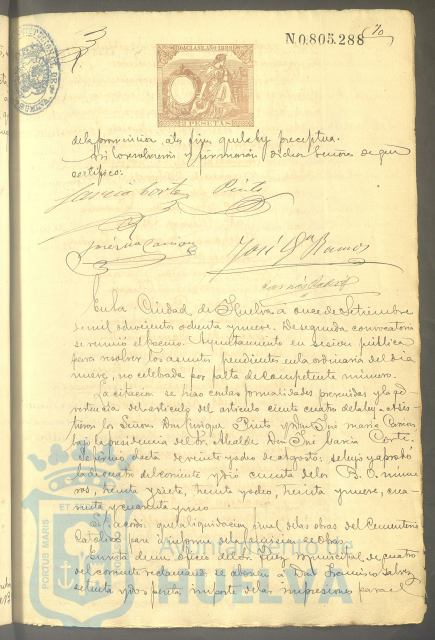 N.0.805.288
70
10ª CLASE AÑO 1889
2 PESETAS
de la provincia á los fines que la ley preceptua.
Asi lo resolvieron y firmarán dichos Señores de que
certifico:
García Corte Pinto
José María Camos
José Dª Ramos
En la Ciudad de Huelva á once de Setiembre
de mil ochocientos ochenta y nueve. De segunda convocatoria
se reunió el Excmo. Ayuntamiento en sesion pública
para resolver los asuntos pendientes en la ordinaria del dia
nueve, no celebrada por falta de competente número.
La citacion se hizo con las formalidades prevenidas y la ad-
vertencia del articulo del articulo ciento cuatro de la ley. Asis-
tieron los Señores Don Enrique Pinto y Don José María
bajo la presidencia del Sr. Alcalde Don José García Corte.
acta de veinte y ocho de agosto, se leyó y aprobó
la de cuatro del corriente y dió cuenta de los B. O. núme-
ros, treinta y siete, treinta y ocho, treinta y nueve, cua-
renta y cuarenta y uno
Se acordó que la liquidacion final de las obras del Cementerio
Católico pase á informe de la Comision de Obras.
En vista de un oficio del Sr. Juez Municipal de cuatro
del corriente reclamando se abonen á Don Francisco
setenta y dos pesetas importe de las impresiones para el
PORTUS MARIS ET
HUELVA